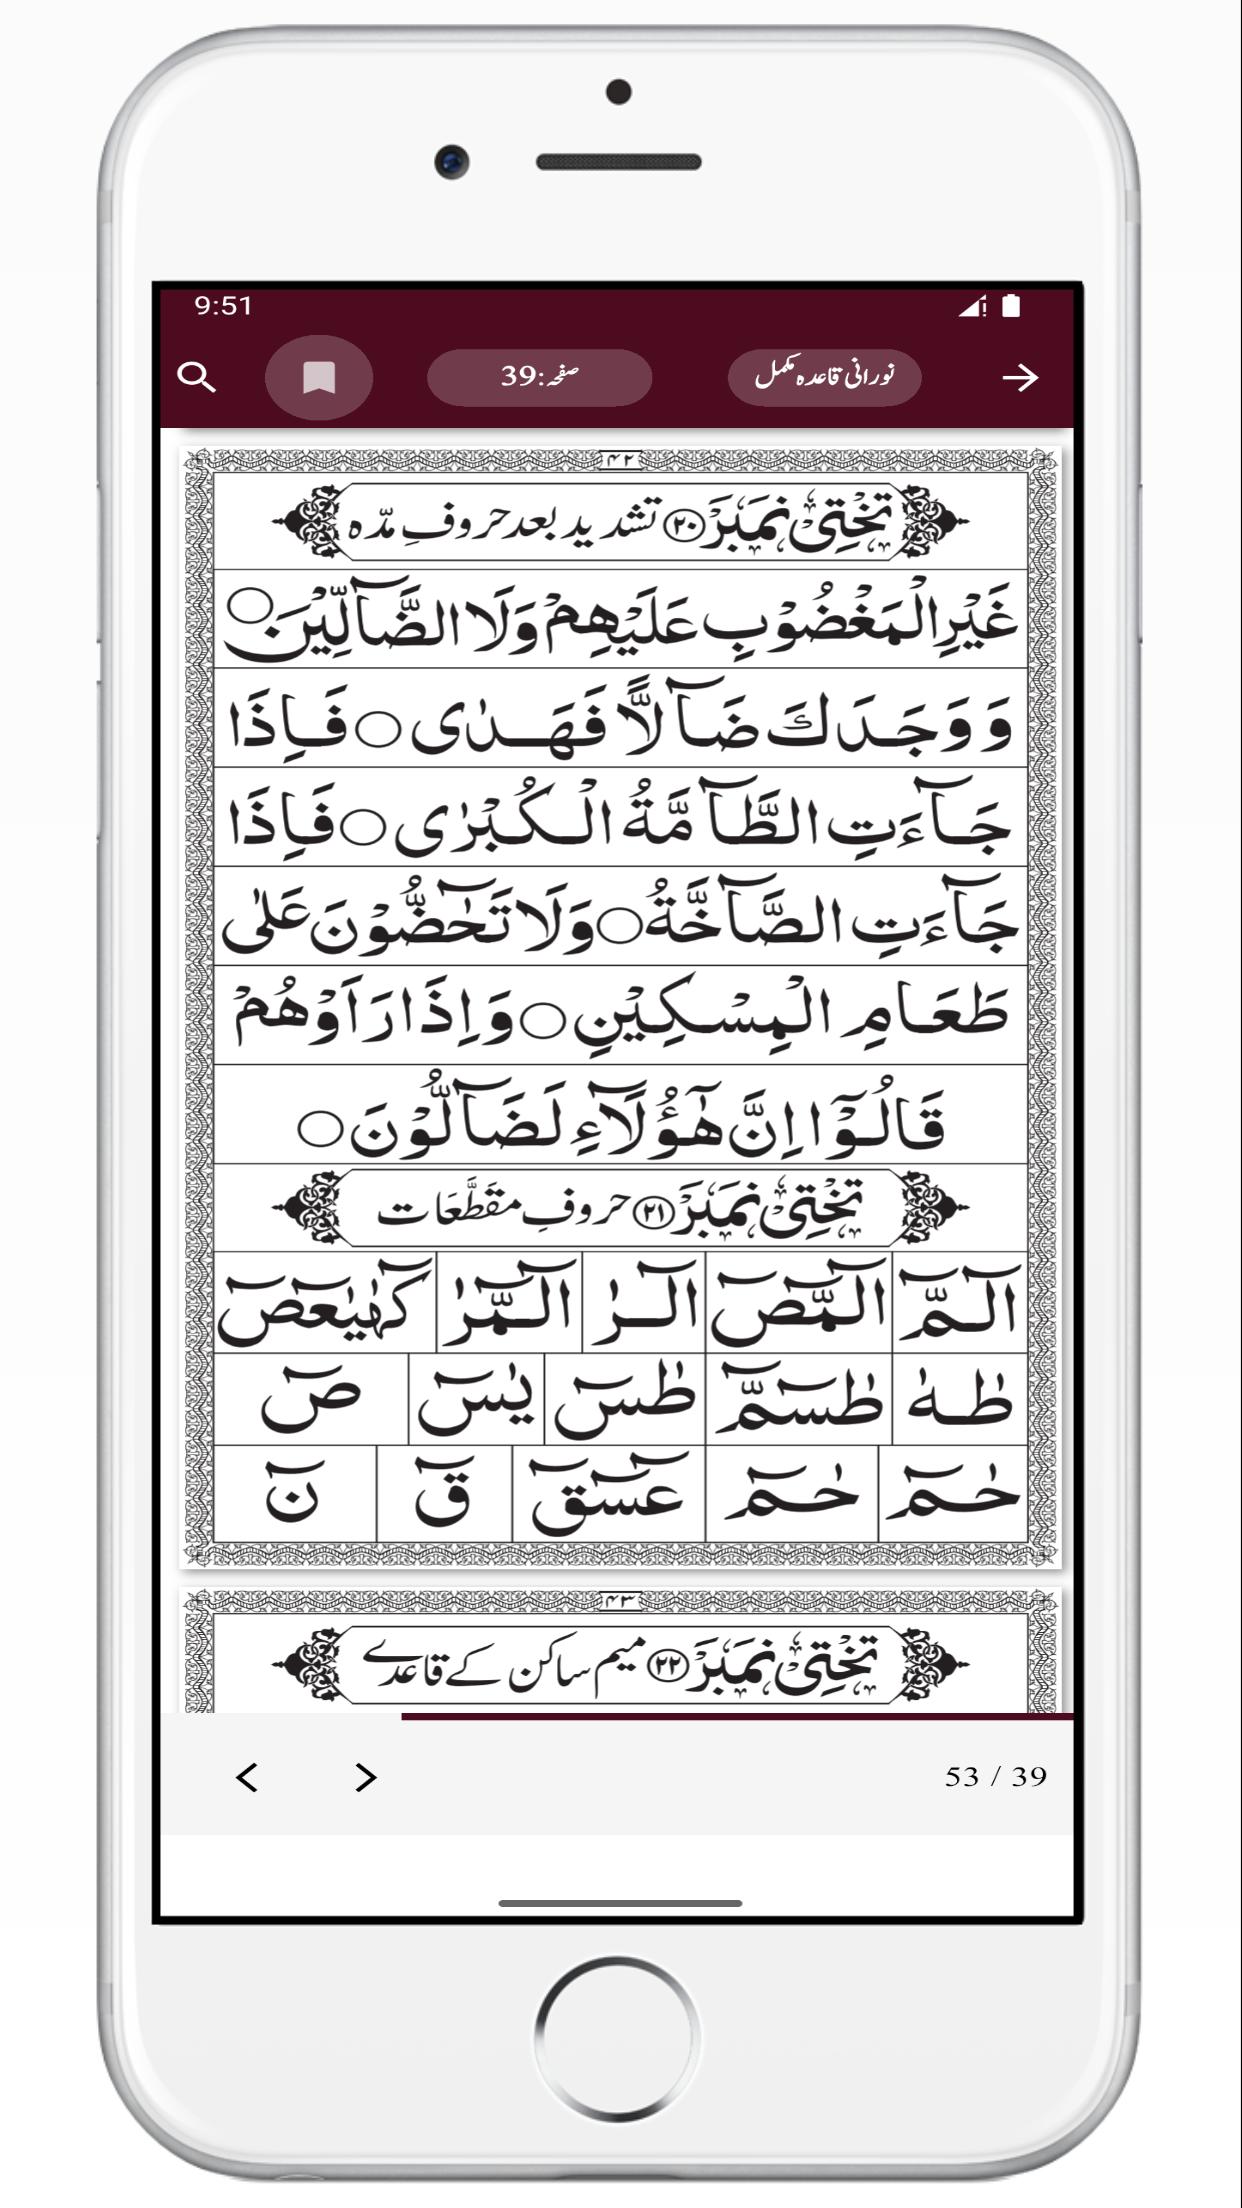 9:51
نورانی قاعدہ مکمل صفحہ:39
۴۲
تختی نمبر ۲۰ تشدید بعد حروفِ مدّہ
غَیْرِ الْمَغْضُوْبِ عَلَیْهِمْ وَلَا الضَّآلِّیْنَ ○
وَ وَجَدَكَ ضَآلًّا فَهَدٰی ○ فَاِذَا
جَآءَتِ الطَّآمَّةُ الْكُبْرٰی ○ فَاِذَا
جَآءَتِ الصَّآخَّةُ ○ وَلَا تَحٰٓضُّوْنَ عَلٰی
طَعَامِ الْمِسْكِیْنِ ○ وَاِذَا رَاَوْهُمْ
قَالُوْٓا اِنَّ هٰٓؤُلَآءِ لَضَآلُّوْنَ ○
تختی نمبر ۲۱ حروفِ مقَطَّعَات
الٓـمّٓ الٓـمّٓصٓ الٓـرٰ الٓـمّٓرٰ كٓهٰیٰعٓصٓ
طٰهٰ طٰسٓمّٓ طٰسٓ یٰسٓ صٓ
حٰمٓ حٰمٓ عٓسٓقٓ قٓ نٓ
۴۳
تختی نمبر ۲۲ میم ساکن کے قاعدے
53 / 39